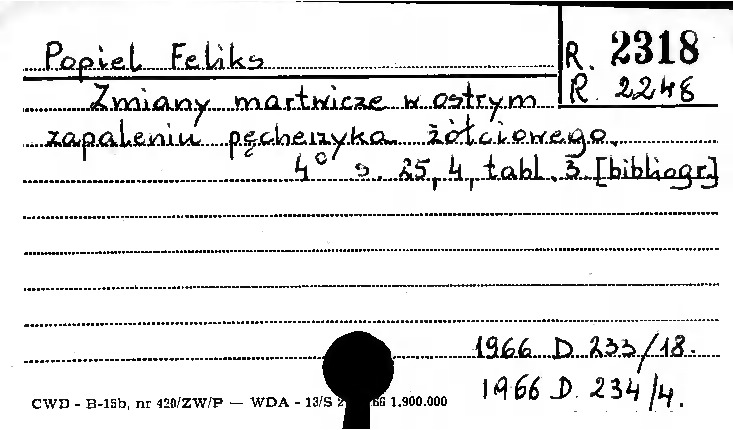 Popiel Feliks R. 2318
R. 2248
Zmiany martwicze w ostrym
zapaleniu pęcherzyka żółciowego.
4° s. 25, 4, tabl. 3 [bibliogr.]
1966 D. 233/18.
1966 D. 234/4.
CWD - B-15b, nr 420/ZW/P — WDA - 13/S 66 1.900.000